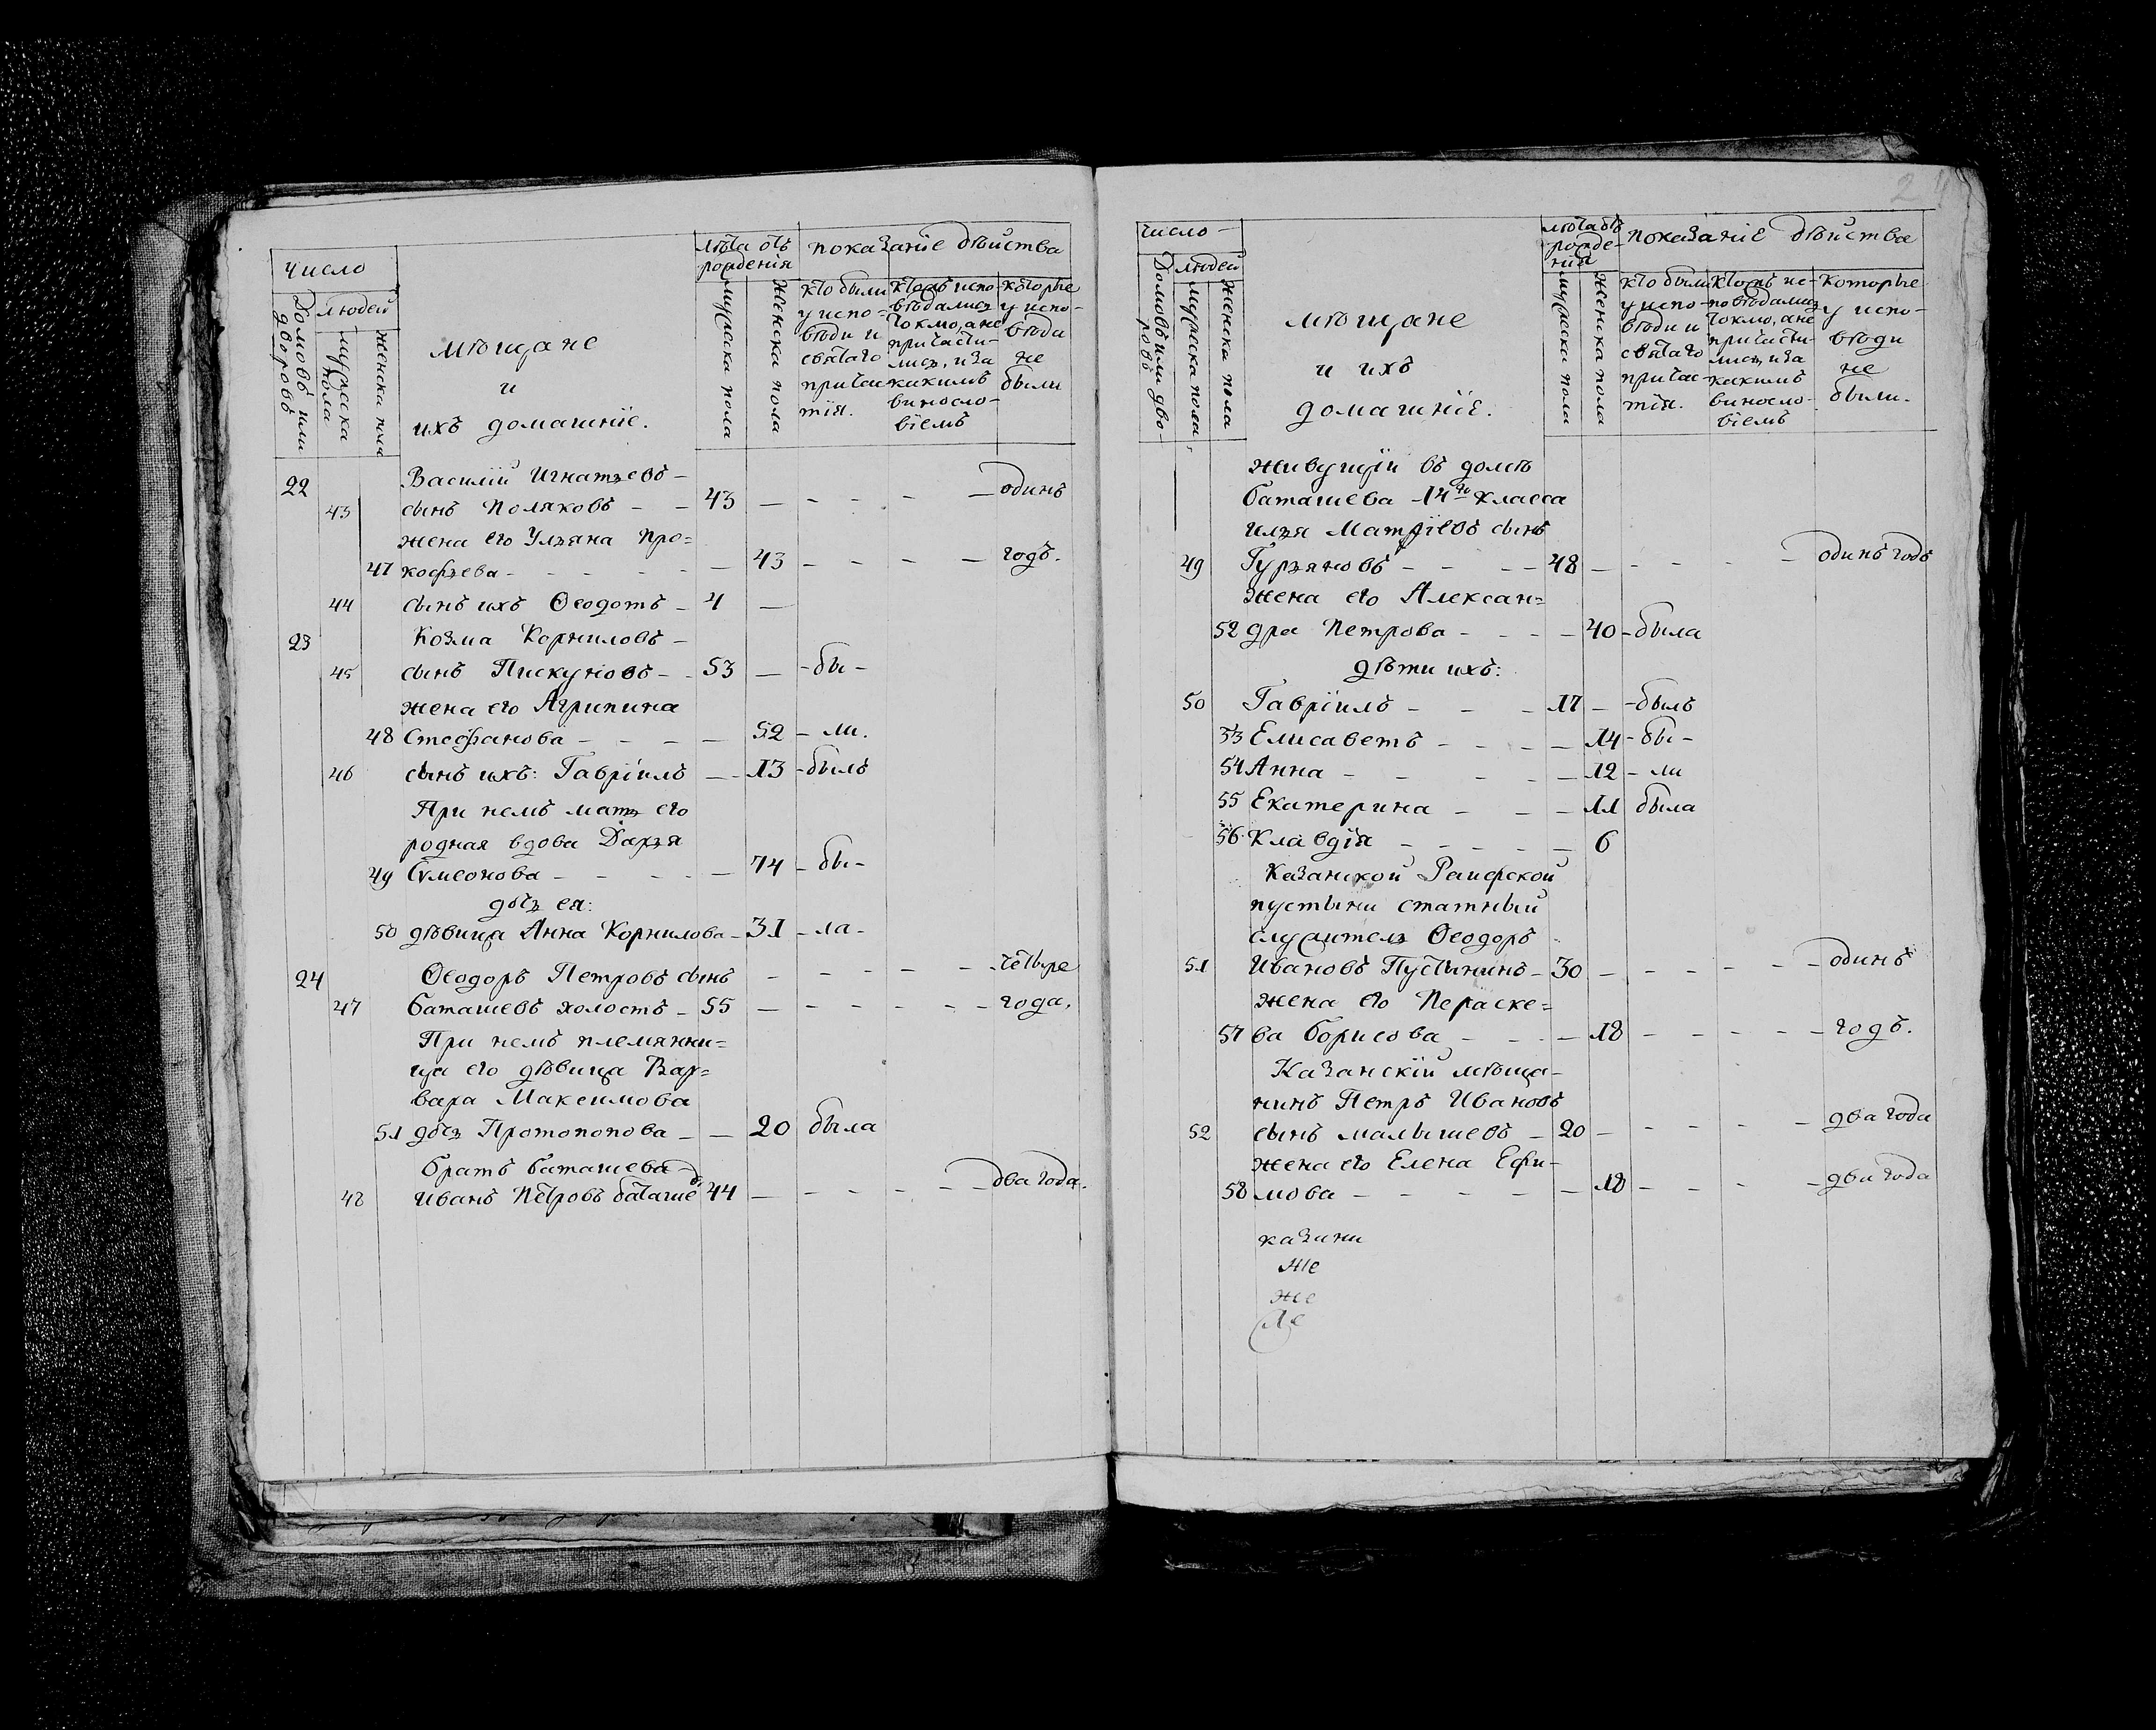 число
людей
Домовъ или дворовъ
мужеска пола
женска пола
мѣщане
и
ихъ домашніе.
лѣта отъ рожденія
мужеска пола
женска пола
показаніе дѣйства
кто были у исповѣди и святаго причастія.
кто исповѣдались токмо, а не причастились, и за какимъ винословіемъ
которые у исповѣди не были
22 Василій Игнатьевъ –
43 сынъ Поляковъ – – 43 – – – – – одинъ
жена его Ульяна Про=
47 кофьева – – – – – – 43 – – – – годъ.
44 сынъ ихъ Ѳеодотъ – 4 –
23 Козма Корниловъ –
45 сынъ Пискуновъ – – 53 – – бы –
жена его Агрипина
48 Стефанова – – – – 52 – ли.
46 сынъ ихъ: Гавріилъ – – 13 – былъ
При немъ мать его
родная вдова Дарья
49 Сѵмеонова – – – – – 74 – бы –
дочь ея:
50 дѣвица Анна Корнилова – 31 – ла –
24 Ѳеодоръ Петровъ сынъ – – – – – четыре
47 баташевъ холостъ – 55 – – – – – – года.
При немъ племянни=
ца его дѣвица Вар=
вара Максимова
51 дочь Протопопова – – 20 была
братъ баташева –
48 иванъ Петровъ баташевъ 44 – – – – – – два года.
число –
людей
Домовъ или дворовъ
мужеска пола
женска пола
мѣщане
и ихъ
домашніе.
лѣта отъ рожденія
мужеска пола
женска пола
показаніе дѣйства
кто были у исповѣди и святаго причастія.
кто исповѣдались токмо, а не причастились, и за какимъ винословіемъ
которые у исповѣди не были.
живущій въ домѣ
баташева 14го класса
илья Матфіевъ сынъ
49 Гурьяновъ – – – – 48 – – – – – одинъ годъ
жена его Алексан=
52 дра Петрова – – – – 40 – была
дѣти ихъ:
50 Гавріилъ – – – 17 – – былъ
53 Елисаветъ – – – – 14 – бы –
54 Анна – – – – – 12 – ли
55 Екатерина – – – 11 была
56 Клавдія – – – – – 6
Казанской Раифской
пустыни статный
служитель Ѳеодоръ
51 Ивановъ Пустынинъ – 30 – – – – – – одинъ
жена его Параске=
57 ва борисова – – – – 18 – – – – – годъ.
Казанскій мѣща–
нинъ Петръ Ивановъ
52 сынъ малышевъ – 20 – – – – – два года
жена его Елена Ефи–
58 мова – – – – – – 18 – – – – два года
казини
же
же